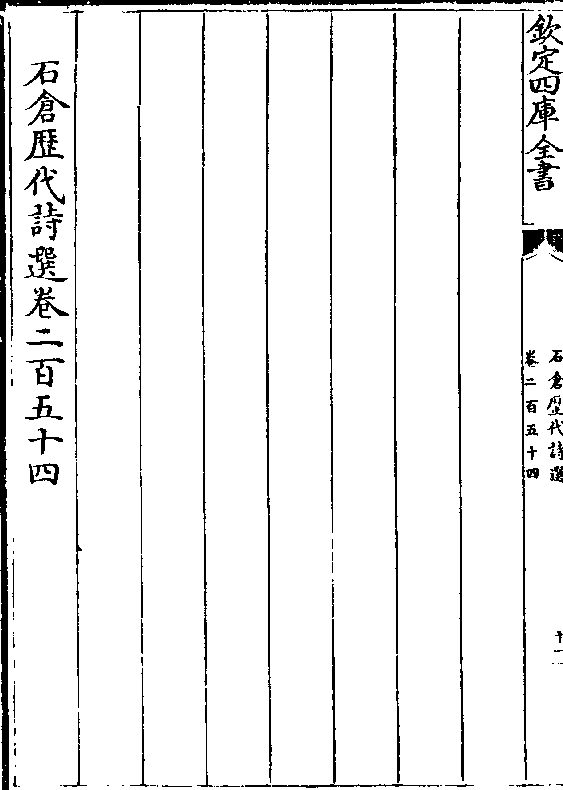 欽定四庫全書
石倉歷代詩選
卷二百五十四
石倉歷代詩選卷二百五十四